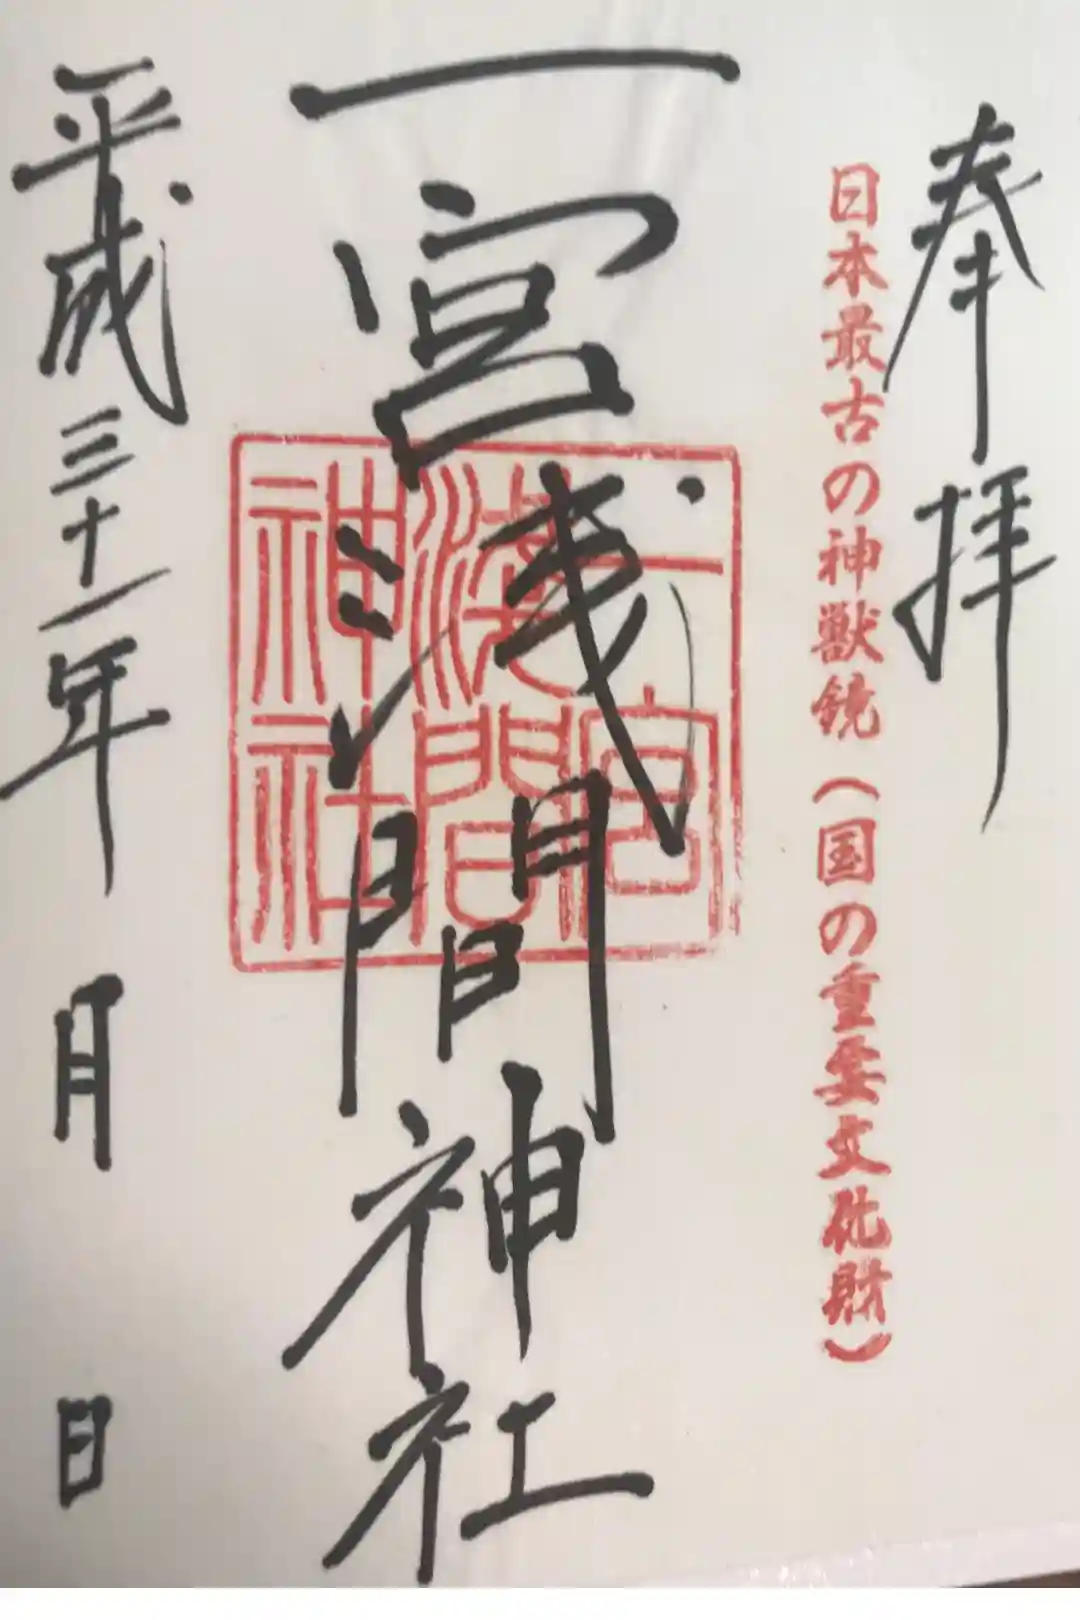 奉拝
日本最古の神獣鏡(国の重要文化財)
一宮浅間神社
一宮
浅間
神社
平成三十一年 月 日